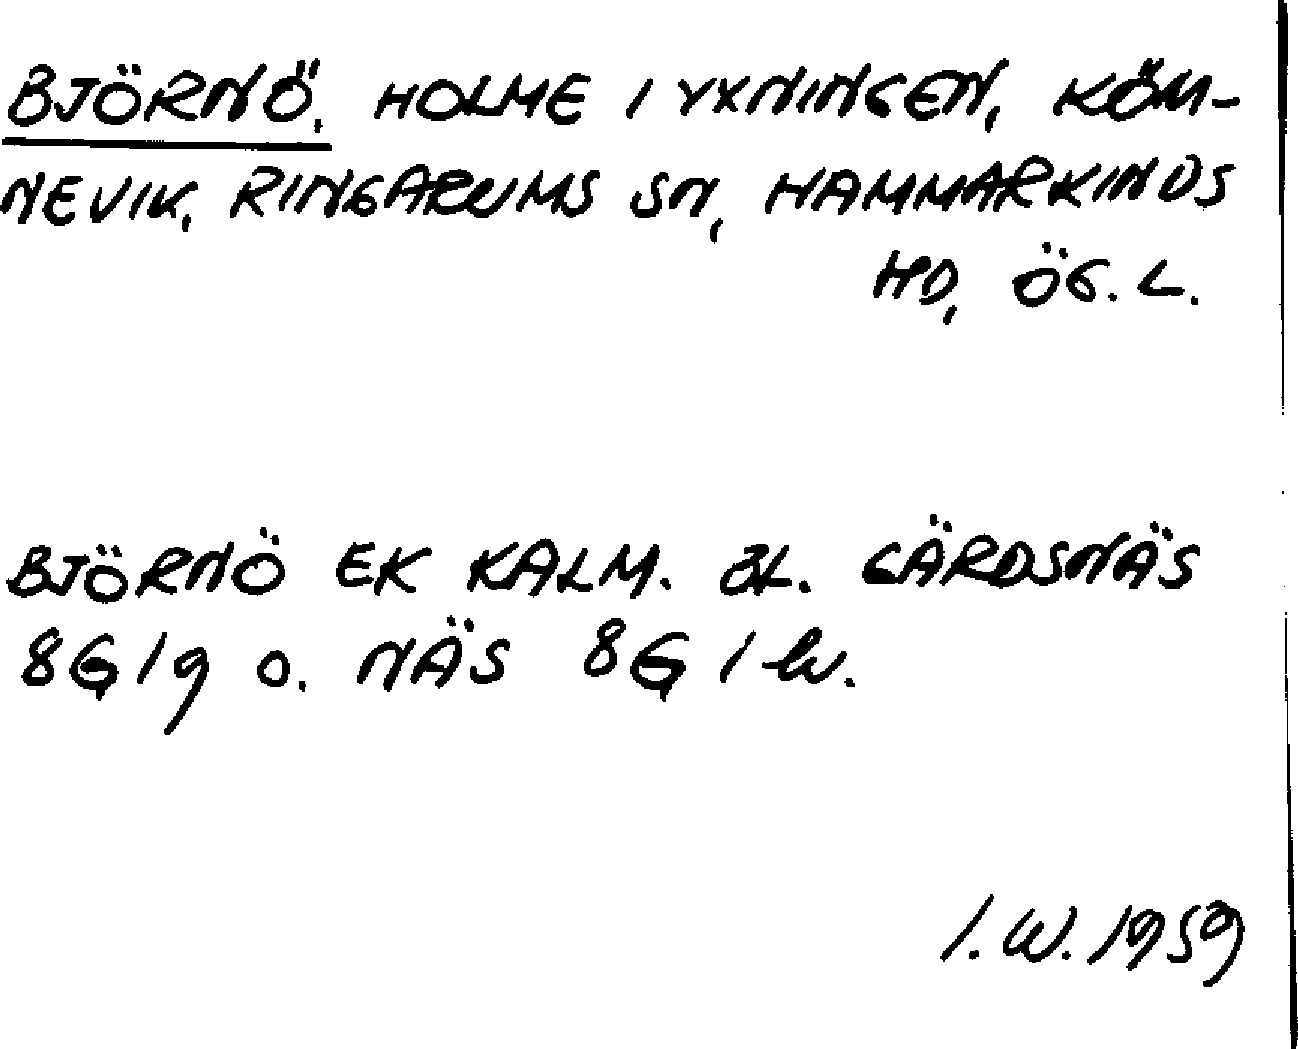 BJÖRNÖ, HOLME I YXNINGEN, KÖM-
NEVIK, RINGARUMS SN, HAMMARKINDS
HD, ÖG. L.
BJÖRNÖ EK KALM. BL. GÄRDSNÄS
8G 1g o. NÄS 8G 1h.
I. W. 1959